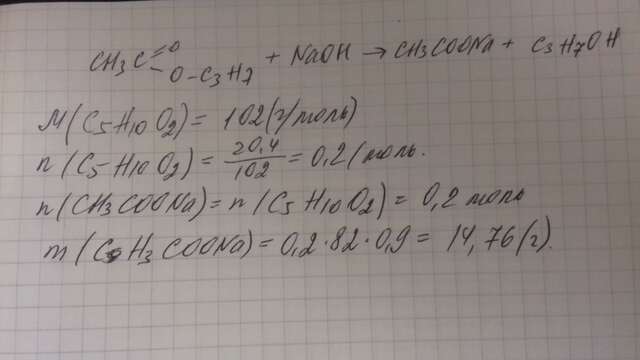 CH3C=O-O-C3H7 + NaOH → CH3COONa + C3H7OH
M(C5H10O2) = 102 (г/моль)
n(C5H10O2) = 20,4/102 = 0,2 (моль.
n(CH3COONa) = n(C5H10O2) = 0,2 моль
m(CH3COONa) = 0,2·82·0,9 = 14,76 (г).